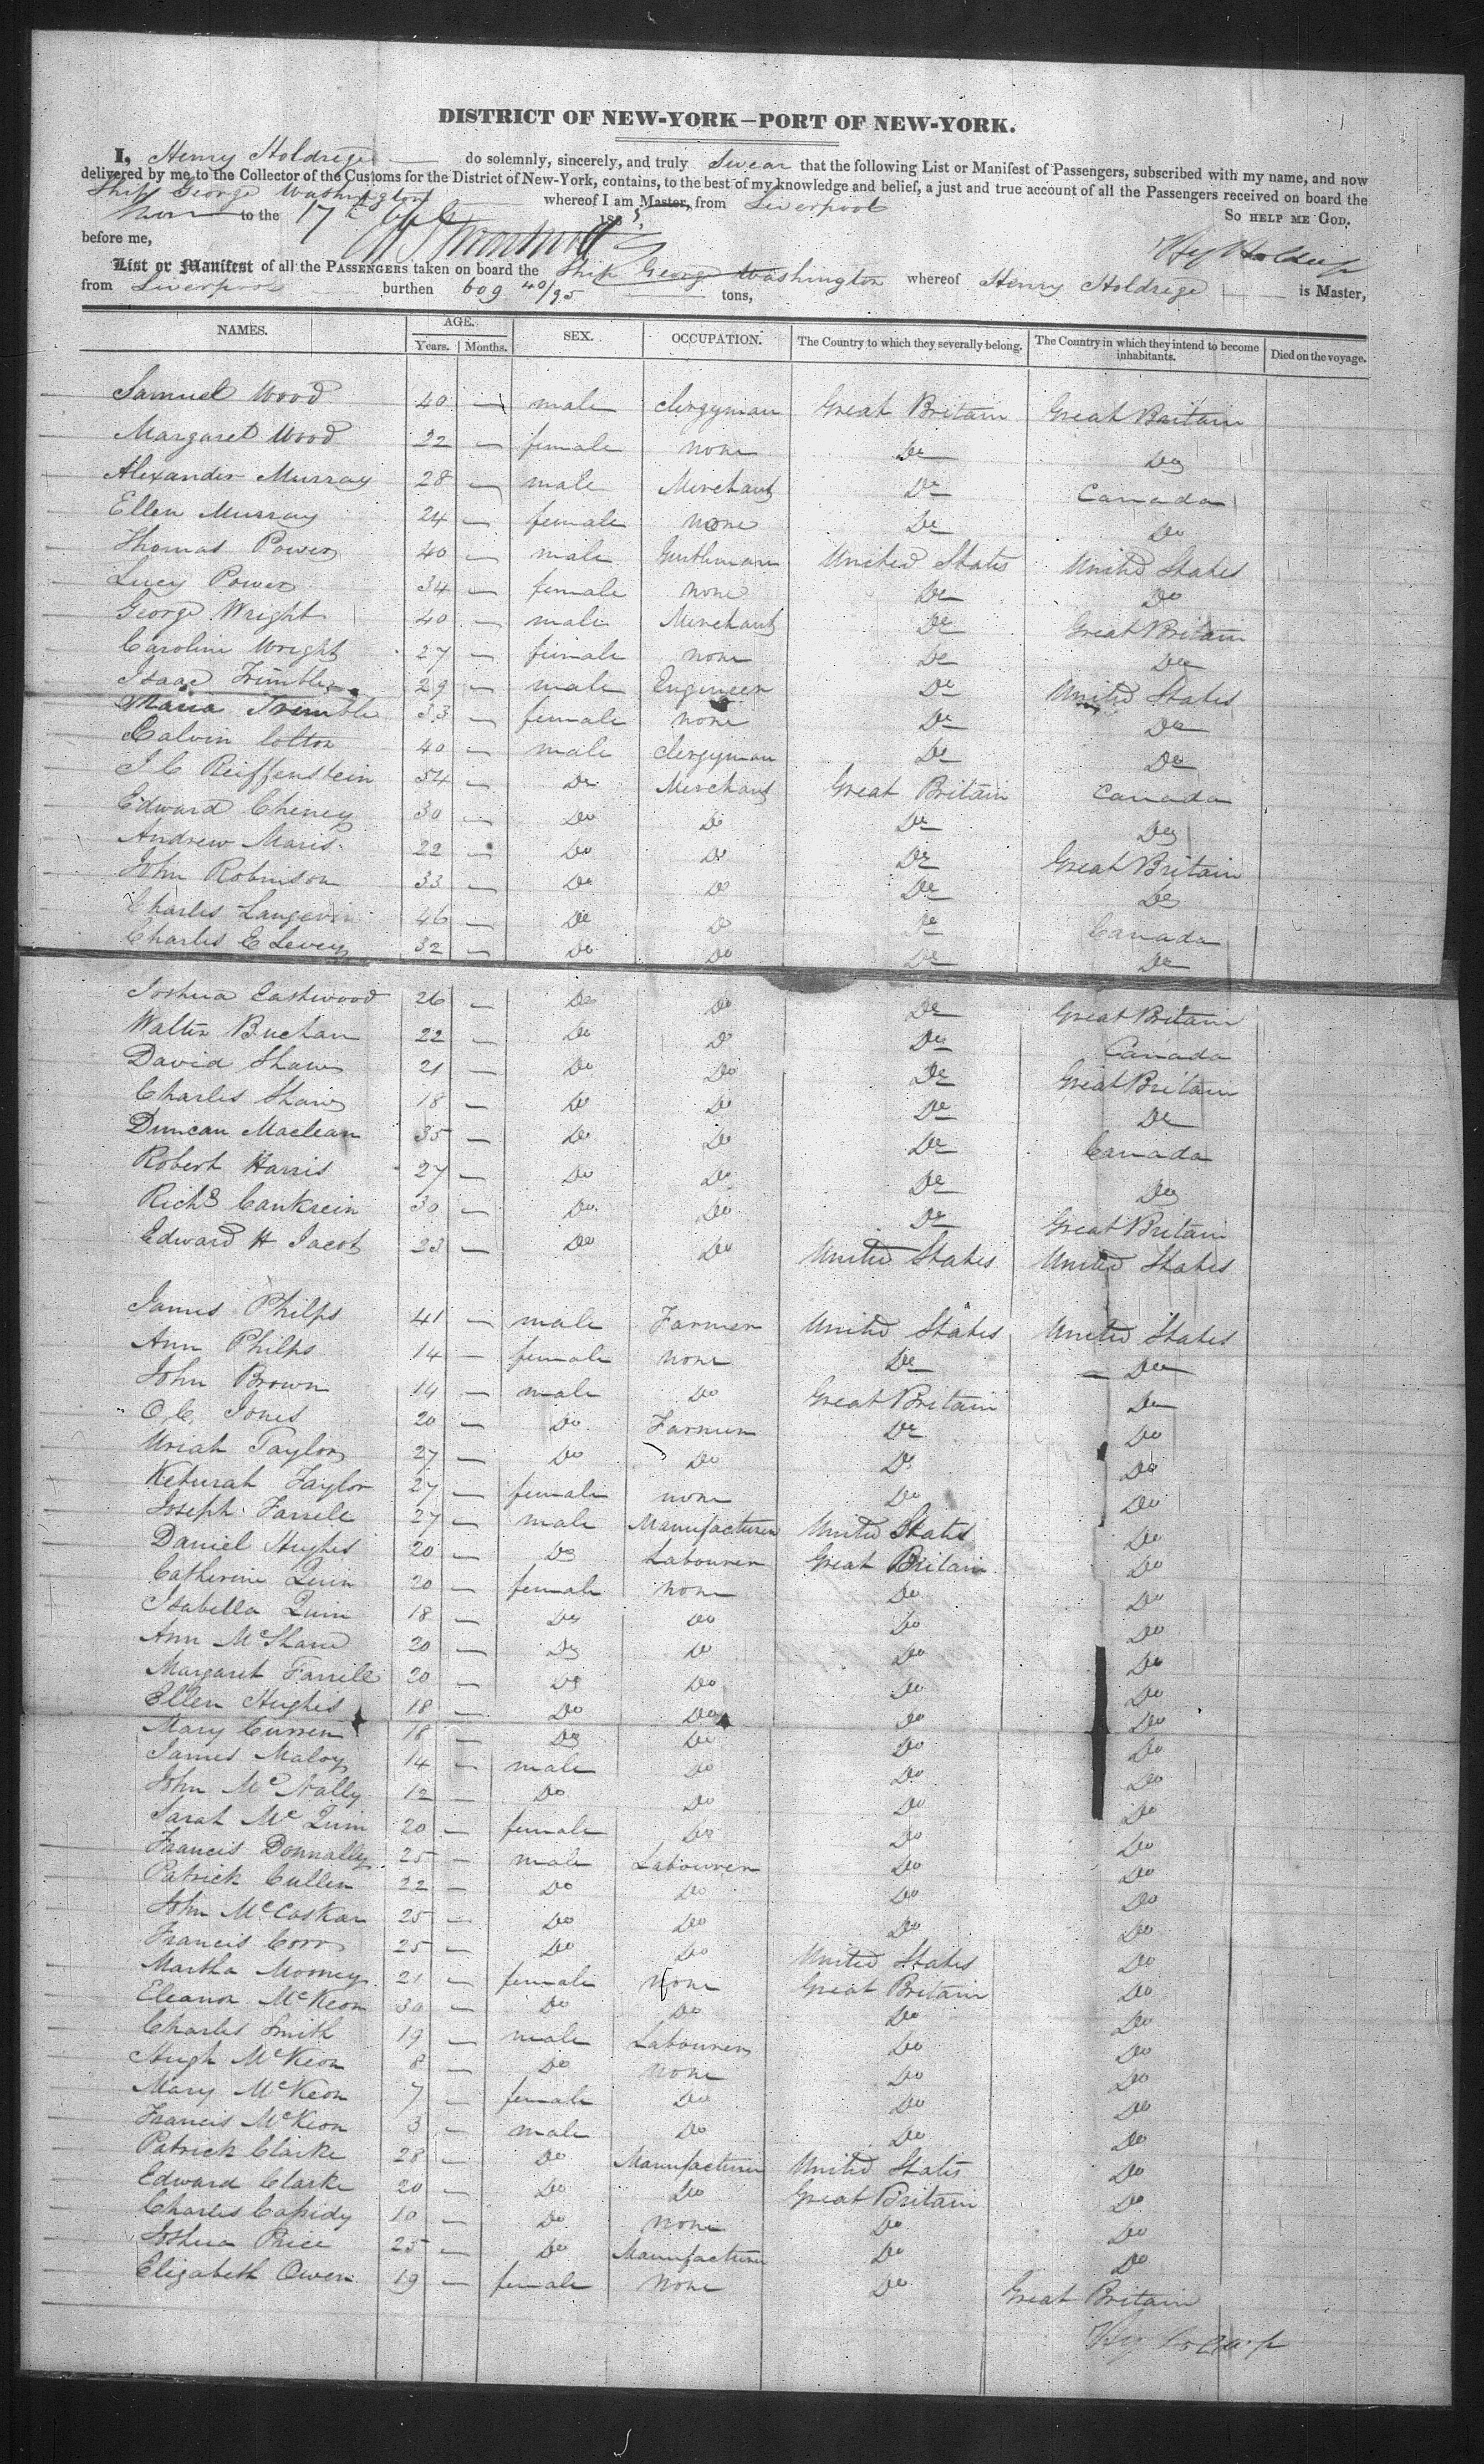 DISTRICT OF NEW-YORK—PORT OF NEW-YORK.
I, Henry Holdrege do solemnly, sincerely, and truly Swear that the following List or Manifest of Passengers, subscribed with my name, and now
delivered by me to the Collector of the Customs for the District of New-York, contains, to the best of my knowledge and belief, a just and true account of all the Passengers received on board the
Ship George Washington whereof I am Master, from Liverpool
to the 17th 183 So HELP ME GOD.
before me,
List or Manifest of all the PASSENGERS taken on board the Ship George Washington whereof Henry Holdrege is Master,
from Liverpool burthen 609 40/95 tons,
NAMES. AGE. SEX. OCCUPATION. The Country to which they severally belong. The Country in which they intend to become inhabitants. Died on the voyage.
Years. Months.
Samuel Wood 40 — male Clergyman Great Britain Great Britain
Margaret Wood 22 — female none Do Do
Alexander Murray 28 — male Merchant Do Canada
Ellen Murray 24 — female none Do Do
Thomas Power 40 — male Gentleman United States United States
Lucy Power 34 — female none Do Do
George Wright 40 — male Merchant Do Great Britain
Caroline Wright 27 — female none Do Do
Isaac Trimble 29 — male Engineer Do United States
Maria Trimble 33 — female none Do Do
Calvin Colton 40 — male Clergyman Do Do
J C Reiffenstein 54 — Do Merchant Great Britain Canada
Edward Cheney 30 — Do Do Do Do
Andrew Maris 22 — Do Do Do Great Britain
John Robinson 33 — Do Do Do Do
Charles Langevin 46 — Do Do Do Canada
Charles E Levey 32 — Do Do Do Do
Joshua Eastwood 26 — Do Do Do Great Britain
Walter Buchan 22 — Do Do Do Canada
David Shaw 21 — Do Do Do Great Britain
Charles Shaw 18 — Do Do Do Do
Duncan Maclean 35 — Do Do Do Canada
Robert Harris 27 — Do Do Do Do
Richd Cankrein 30 — Do Do Do Great Britain
Edward H Jacot 23 — Do Do United States United States
James Philps 41 — male Farmer United States United States
Ann Philps 14 — female none Do Do
John Brown 14 — male Do Great Britain Do
O. C. Jones 20 — Do Farmer Do Do
Uriah Taylor 27 — Do Do Do Do
Keturah Taylor 27 — female none Do Do
Joseph Farrell 27 — male Manufacturer United States Do
Daniel Hughes 20 — Do Labourer Great Britain Do
Catherine Quin 20 — female none Do Do
Isabella Quin 18 — Do Do Do Do
Ann McShane 20 — Do Do Do Do
Margaret Farrell 20 — Do Do Do Do
Ellen Hughes 18 — Do Do Do Do
Mary Curren 18 — Do Do Do Do
James Maloy 14 — male Do Do Do
John McNally 12 — Do Do Do Do
Sarah McQuin 20 — female Do Do Do
Francis Donnally 25 — male Labourer Do Do
Patrick Cullen 22 — Do Do Do Do
John McCoskar 25 — Do Do Do Do
Francis Corr 25 — Do Do United States Do
Martha Mooney 21 — female none Great Britain Do
Eleanor McKeon 30 — Do Do Do Do
Charles Smith 19 — male Labourer Do Do
Hugh McKeon 8 — Do none Do Do
Mary McKeon 7 — female Do Do Do
Francis McKeon 3 — male Do Do Do
Patrick Clarke 28 — Do Manufacturer United States Do
Edward Clarke 20 — Do Do Great Britain Do
Charles Cassidy 10 — Do none Do Do
Joshua Price 25 — Do Manufacturer Do Do
Elizabeth Owen 19 — female none Do Great Britain